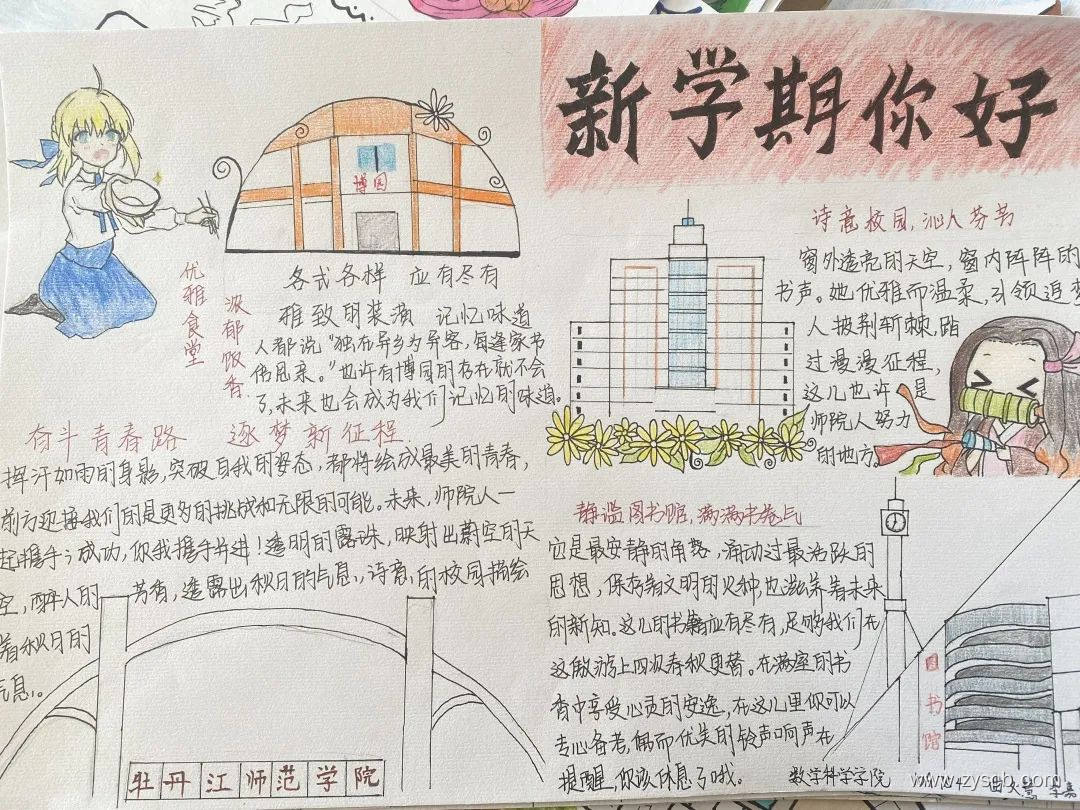 新学期你好
博园
优雅食堂
浓郁饭香
各式各样 应有尽有
雅致的装潢 记忆味道
人都说“独在异乡为异客，每逢家书
倍思亲。”也许有博园的存在就不会
了，未来也会成为我们记忆的味道。
奋斗青春路 逐梦新征程
挥汗如雨的身影，突破自我的姿态，都将绘成最美的青春，
前方迎接我们的是更多的挑战和无限的可能。未来，师院人一
起握手；成功，你我携手并进！透明的露珠，映射出蔚空的天
空，醉人的 芳香，透露出秋日的气息，诗意的校园描绘
着秋日的
气息。
牡丹江师范学院
诗意校园，沁人芬书
窗外透亮的天空，窗内阵阵的
书声。她优雅而温柔，引领追梦
人披荆斩棘，踏
过漫漫征程，
这儿也许是
师院人努力
的地方。
静谧图书馆，满满书卷气
它是最安静的角落，涌动过最活跃的
思想，保存着文明的火种，也滋养着未来
的新知。这儿的书籍应有尽有，足够我们在
这遨游上四次春秋更替。在满室的书
香中享受心灵的安逸，在这儿里你可以
专心备考，偶而优美的铃声响声在
提醒，你该休息了哦。
图书馆
数学科学学院
www.zyscb.com